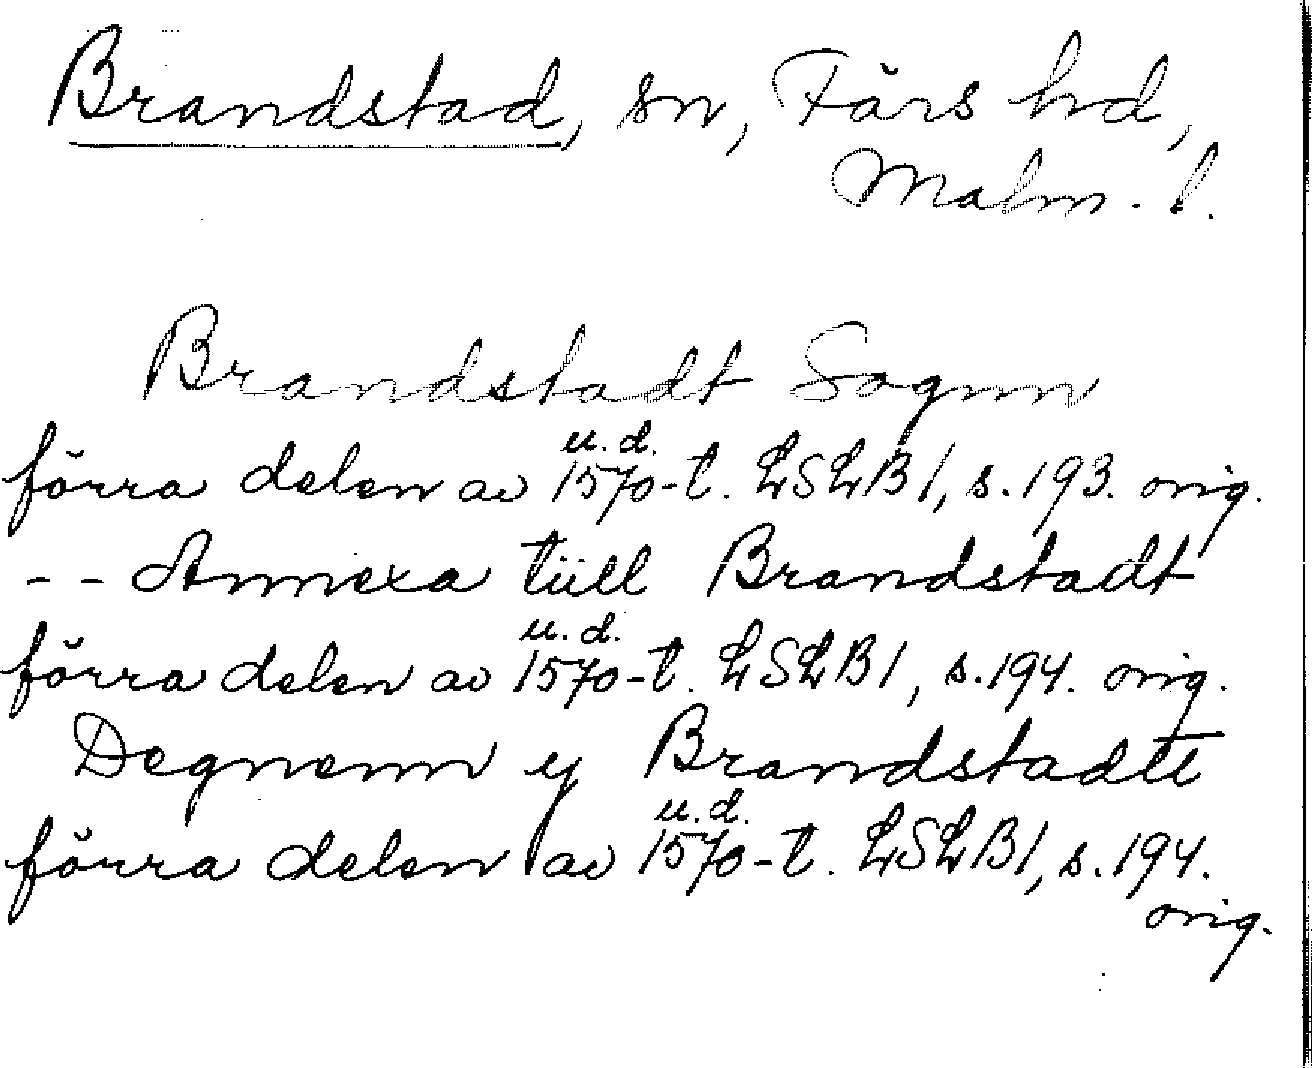 Brandstad, sn, Färs hd,
Malm. l.
Brandstadt Sognn
u.d.
förra delen av 1570-t. LSLB1, s. 193. orig.
-- Annexa tiill Brandstadt
u.d.
förra delen av 1570-t. LSLB1, s. 194. orig.
Degnenn y Brandstadtt
u.d.
förra delen av 1570-t. LSLB1, s. 194.
orig.